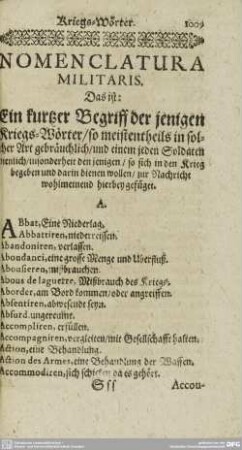 Kriegs-Wörter. 1009
NOMENCLATURA
MILITARIS.
Das ist:
Ein kurtzer Begriff der jenigen
Kriegs-Wörter/so meistentheils in sol-
cher Art gebräuchlich/und einem jeden Soldaten
nenlich/insonderheit den jenigen/ so sich in den Krieg
begeben und darin dienen wollen/ zur Nachricht
wohlmeinend hierbey gefüget.
A.
ABbat, Eine Niederlag.
Abbattiren, niederreissen.
Abandoniren, verlassen.
Abondanci, eine grosse Menge und Uberfluß.
Abousieren, mißbrauchen.
Abous de laguerre, Mißbrauch des Kriegs.
Aborder, am Bord kommen/oder angreiffen.
Absentiren, abwesend seyn.
Absurd, ungereimt.
Accompliren, erfüllen.
Accompagniren, vergleiten/mit Gesellschafft halten.
Action, eine Behandlung.
Action des Armes, eine Behandlung der Waffen.
Accommodiren, sich schicken da es gehört.
Sss Accou-